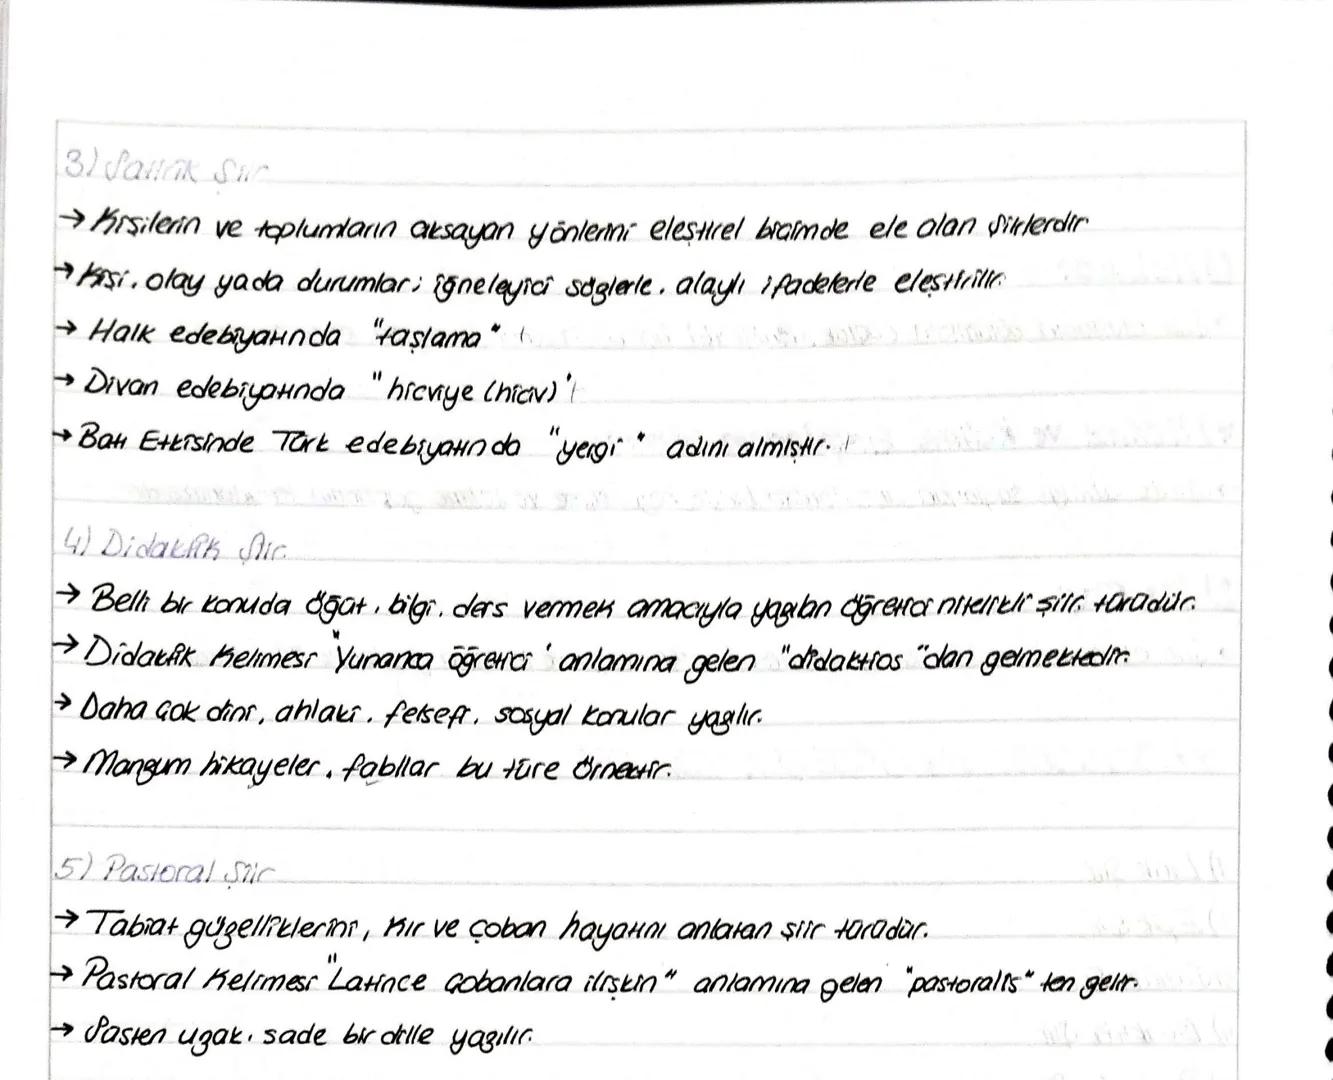 3) Satirik Şiir
→ Kişilerin ve toplumların aksayan yönlerini eleştirel biçimde ele alan şiirlerdir
→ Kişi, olay yada durumlar; iğneleyici sözlerle, alaylı ifadelerle eleştirilir.
→ Halk edebiyatında "taşlama"
→ Divan edebiyatında "hicviye (hiciv)"
→ Batı Etkisinde Türk edebiyatında "yergi" adını almıştır.
4) Didaktik Şiir
→ Belli bir konuda öğüt, bilgi, ders vermek amacıyla yazılan öğretici nitelikli şiir türüdür.
→ Didaktik kelimesi "Yunanca öğretici" anlamına gelen "didaktios"dan gelmektedir.
→ Daha çok dini, ahlaki, felsefi, sosyal konular yazılır.
→ Manzum hikayeler, fabllar bu türe örnektir.
5) Pastoral Şiir
→ Tabiat güzelliklerini, kır ve çoban hayatını anlatan şiir türüdür.
→ Pastoral kelimesi "Latince çobanlara ilişkin" anlamına gelen "pastoralis" ten gelir.
→ Süsten uzak, sade bir dille yazılır.